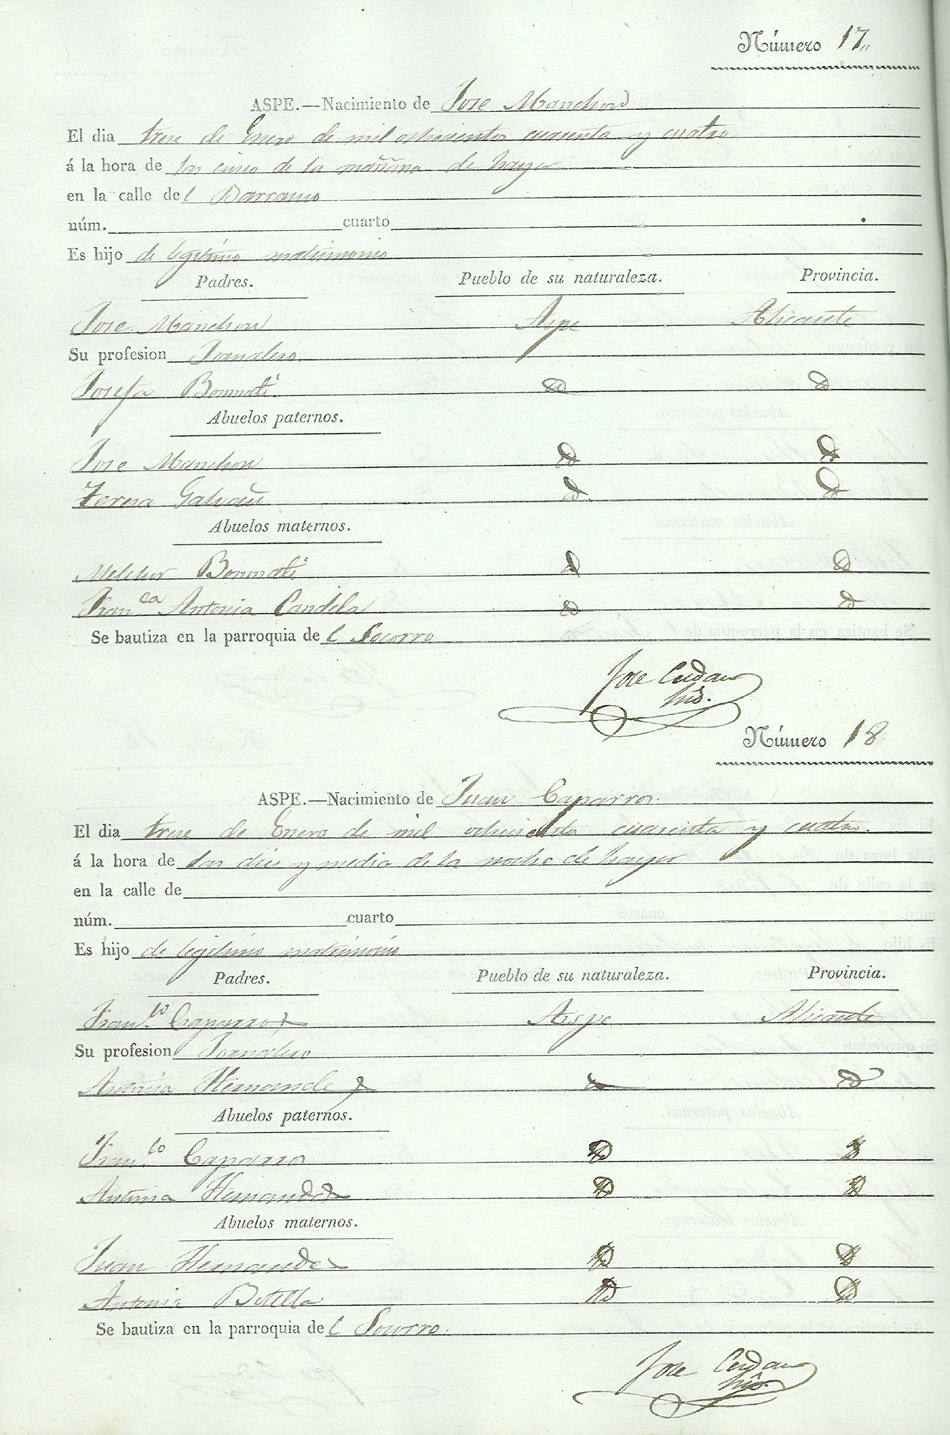 Número 17
ASPE.—Nacimiento de Jose Manchon
El dia trese de Enero de mil ochosientos cuarenta y cuatro
á la hora de las cinco de la mañana de hayer
en la calle del Barranco
núm. cuarto
Es hijo de legitimo matrimonio
Padres. Pueblo de su naturaleza. Provincia.
Jose Manchon Aspe Alicante
Su profesion Jornalero
Josefa Bonmati. Yd Yd
Abuelos paternos.
Jose Manchon Yd Yd
Teresa Galvañ Yd Yd
Abuelos maternos.
Melchor Bonmati Yd Yd
Fran.ca Antonia Candela Yd Yd
Se bautiza en la parroquia del Socorro
Jose Cerdan
Número 18
ASPE.—Nacimiento de Juan Caparros.
El dia trese de Enero de mil ochosiento cuarenta y cuatro.
á la hora de las dies y media de la noche de hayer
en la calle de
núm. cuarto
Es hijo de legitimo matrimonio
Padres. Pueblo de su naturaleza. Provincia.
Fran.co Caparros Aspe Alicante
Su profesion Jornalero
Antonia Hernandez Yd Yd
Abuelos paternos.
Fran.co Caparros Yd Yd
Antonia Hernandez Yd Yd
Abuelos maternos.
Juan Hernandez Yd Yd
Antonia Botella Yd Yd
Se bautiza en la parroquia del Socorro.
Jose Cerdan